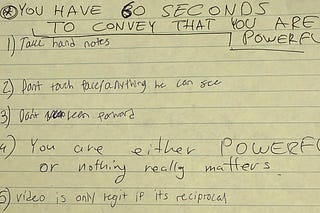 YOU HAVE 60 SECONDS
TO CONVEY THAT YOU ARE
POWERFU
1) Take hand notes
2) Dont touch face/anything he can see
3) Dont lean forward
4) You are either POWERFU
or nothing really matters.
5) video is only legit if its reciprocal